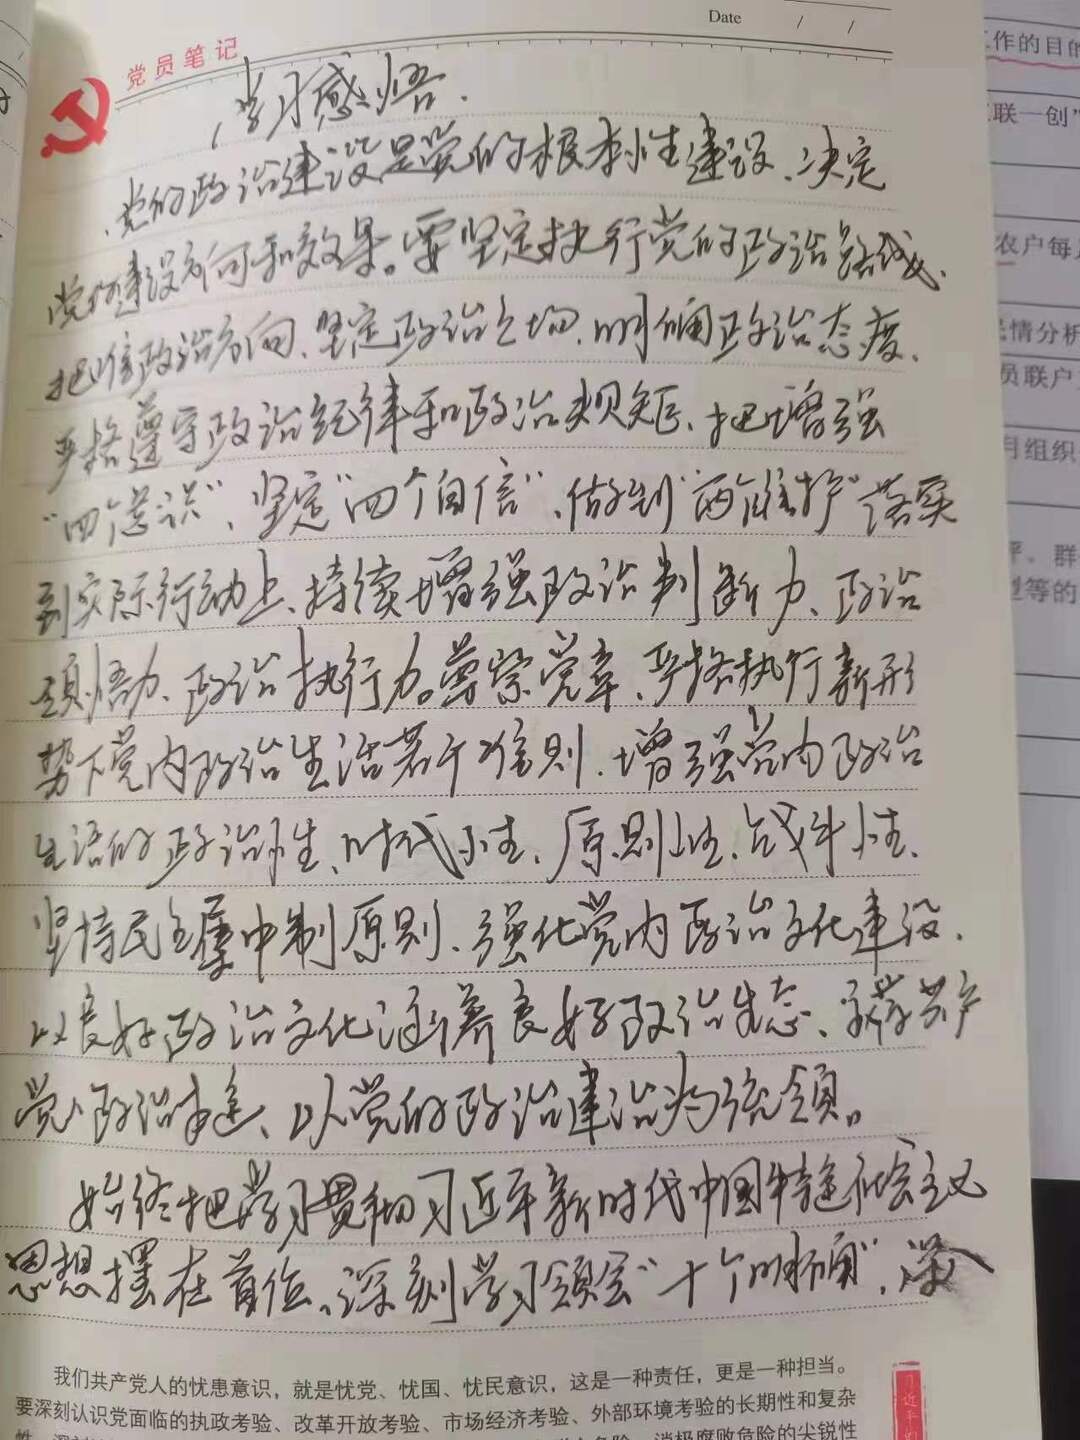 Date / /
党员笔记
学习感悟.
党的政治建设是党的根本性建设、决定
党的建设方向和效果。要坚定执行党的政治路线、
把准政治方向、坚定政治立场、明确政治态度、
严格遵守政治纪律和政治规矩、把增强
“四个意识”、坚定“四个自信”、做到“两个维护”落实
到实际行动上、持续增强政治判断力、政治
领悟力、政治执行力。尊崇党章、严格执行新形
势下党内政治生活若干准则、增强党内政治
生活的政治性、时代性、原则性、战斗性、
坚持民主集中制原则、强化党内政治文化建设、
以良好政治文化涵养良好政治生态、永葆共产
党人政治本色、以党的政治建治为统领。
始终把学习贯彻习近平新时代中国特色社会主义
思想摆在首位、深刻学习领会“十个明确”、深入
我们共产党人的忧患意识，就是忧党、忧国、忧民意识，这是一种责任，更是一种担当。
要深刻认识党面临的执政考验、改革开放考验、市场经济考验、外部环境考验的长期性和复杂
消极腐败危险的尖锐性
习近平的
工作的目的
联一创”
农户每
情分析
员联户
月组织
群
等的